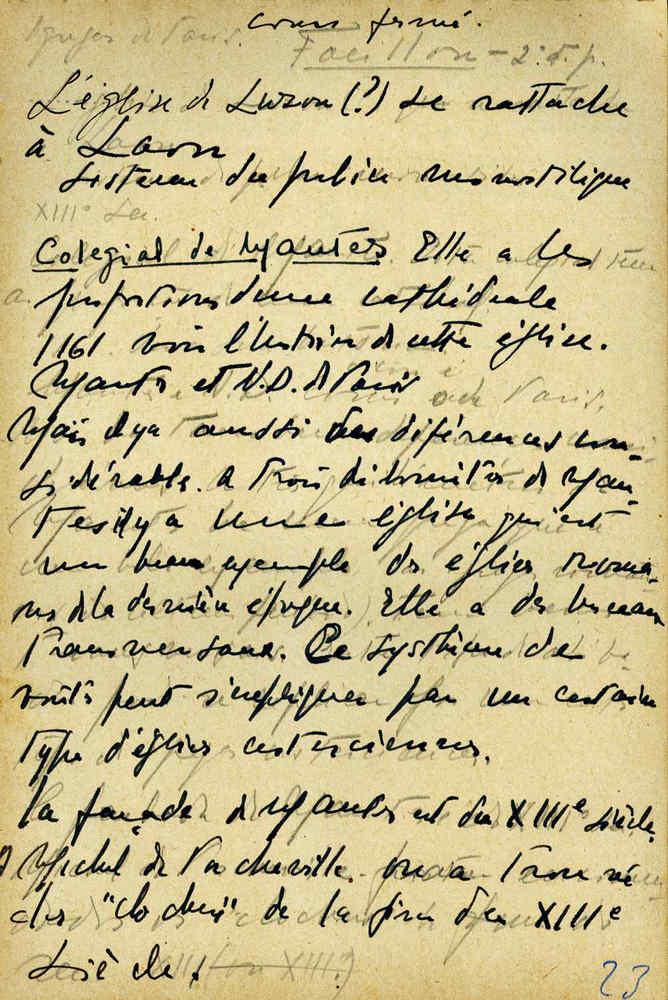 Cours fermé.
Focillon – 2e s. p.
L'église de Luzon (?) se rattache
à Laon
Sisteme du publie monostilique
XIIIe
Colegial de Mantes Elle a les
proportions d'une cathédrale
1161 voir l'histoire de cette église.
Mantes et N.D. de Paris
Mais il y a aussi des diférences con-
sidérables. A trois kilomitres de Man-
tes il y a une église qui est
un beau exemple des églises roma-
nes de la dernière époque. Elle a des berceaux
transversaux. Ce systhème de
voûtes peut s'expliquer par un certain
type d'églises cisterciennes.
La façade de Mantes est du XIIIe siècle.
Michel de Vacheville. on a trouvé
des "clochers" de la fin du XIIIe
siècle.
(ou XIII?)
23